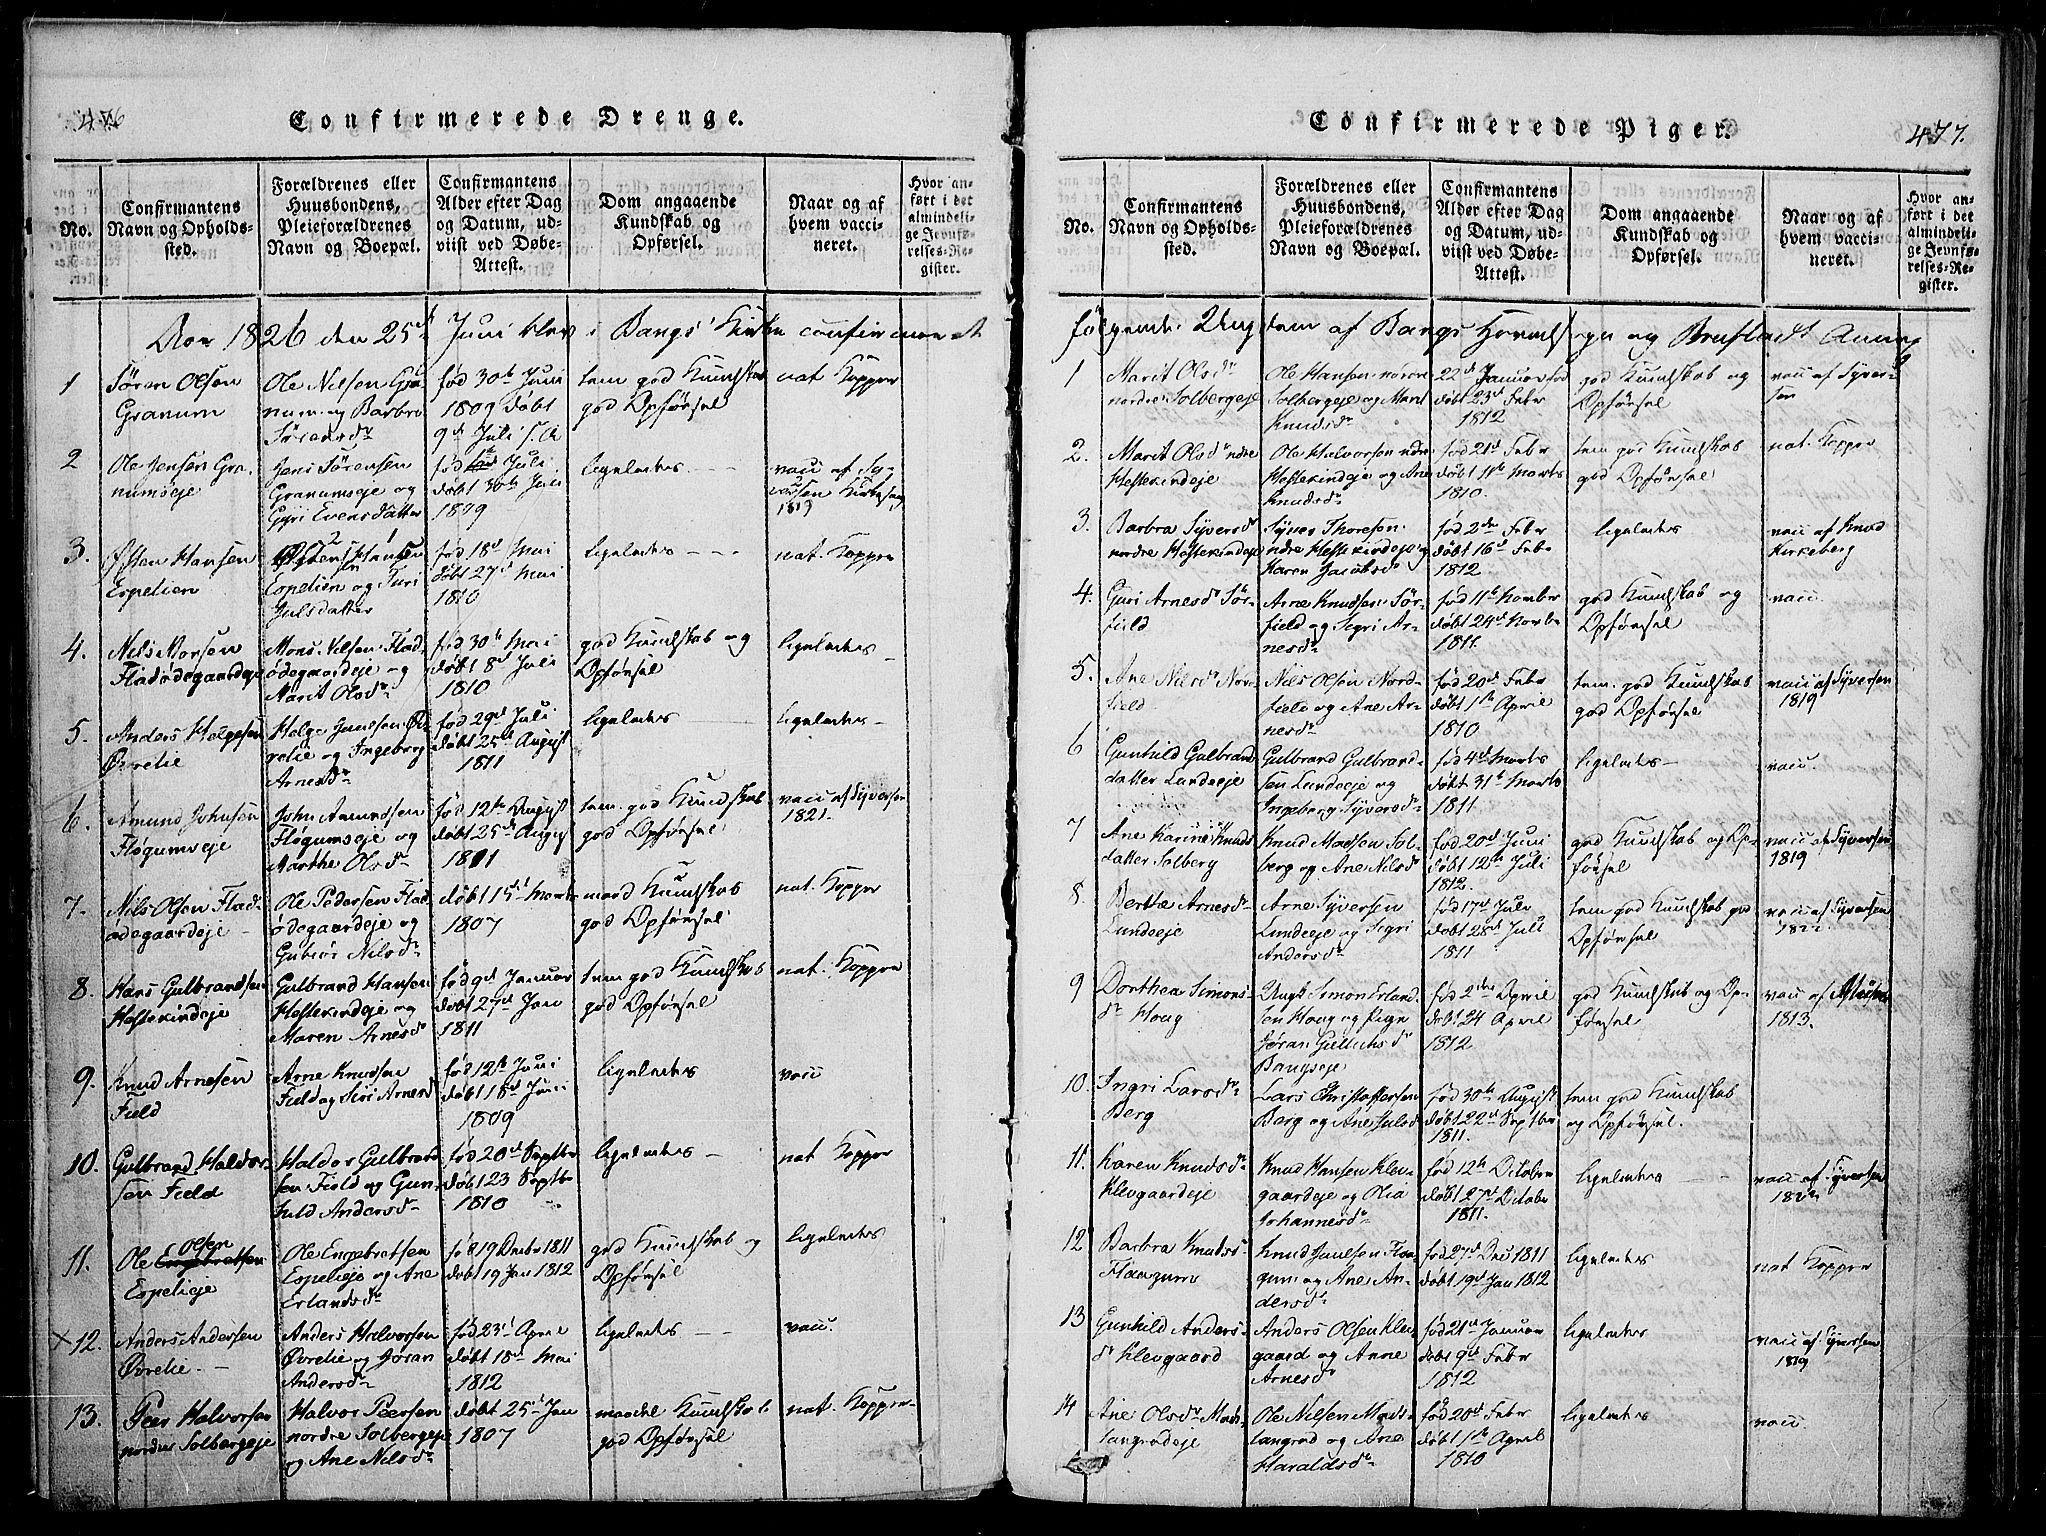 476
Confirmerede Drenge.
No.
Confirmantens
Navn og Opholds-
sted.
Forældrenes eller
Huusbondens,
Pleieforældrenes
Navn og Boepæl.
Confirmantens
Alder efter Dag
og Datum, ud-
viist ved Døbe-
Attest.
Dom angaaende
Kundskab og
Opførsel.
Naar og af
hvem vacci-
neret.
Hvor an-
ført i det
almindeli-
ge Jevnfø-
relses-Re-
gister.
1826 den 25d Juni blev i Bangs Kirke confirmeret
1
Søren Olsen
Granum
Ole Nilsen Gra-
num og Barbro
Sørensdr
fød 30t Juni
1809 døbt
9d Juli
tem god Kundskab
god Opførsel
nat Kopper
2
Ole Jensen Gra-
numseje
Jens Sørensen
Granumseje og
Gyri Evensdatter
fød Juli
døbt 30t Juli
1809
ligeledes
vacc af Sy-
versen
1819
3.
Østen Hansen
Espelien
Espelien og Turi
Julsdatter
fød 18d Mai
døbt 27d Mai
1810
ligeledes
nat. Kopper
4.
Nils Monsen
Fladødegaardeje
Mons Nilsen Flad-
ødegaardeje og
Marit Olsdr
fød 30t Mai
døbt 8d Juli
1810
god Kundskab og
Opførsel
ligeledes
5.
Anders Helgesen
Øvrelie
Helge Juulsen Ø-
vrelie og Ingeborg
Arnesdr
fød 29d Juli
døbt 25d August
1811
ligeledes
ligeledes
6.
Amund Johnsen
Fløgumseje
John Amundsen
Fløgumseje og
Marthe Olsdr
fød 12te August
døbt 25d August
1811
tem. god Kundskab
god Opførsel
vacc af Syversen
1821.
7.
Nils Olsen Flad-
ødegaardeje
Ole Pedersen Flad-
ødegaardeje og
Gubiør Nilsdr
døbt 15d Marts
1807
maad Kundskab
god Opførsel
nat. Kopper
8.
Hans Gulbrandsen
Hestekindeje
Gulbrand Hansen
Hestekindeje og
Maren Arnesdr
fød 9d Januar
døbt 27d Jan
1811
tem god Kundskab
god Opførsel
nat. Kopper
9.
Knud Arnesen
Field
Arne Knudsen
Field og Siri Arnesd
fød 12te Juni
døbt 18d Juni
1809
ligeledes
vacc
10.
Gulbrand Haldor-
sen Field
Haldor Gulbrand
sen Field og Gun-
hild Andersdr
fød 20d Septbr
døbt 23 Septbr
1810
ligeledes
nat Kopper
11.
Olsen
Ole Engebretsen
Espelieje
Ole Engebretsen
Espelieje og Ane
Erlandsdr
fød 19 Decbr 1811
døbt 19 Jan 1812
god Kundskab og
Opførsel
ligeledes
x 12.
Anders Andersen
Øvrelie
Anders Halvorsen
Øvrelie og Jøran
Andersdr
fød 23d April
døbt 18d Mai
1812
ligeledes
vacc.
13.
Peer Halvorsen
nordre Solbergeje
Halvor Peersen
nordre Solbergeje
og Ane Nilsdr
døbt 25d Jan
1807
maadel Kundskab
god Opførsel
nat. Kopper
477.
Confirmerede Piger.
No.
Confirmantens
Navn og Opholds-
sted.
Forældrenes eller
Huusbondens,
Pleieforældrenes
Navn og Boepæl.
Confirmantens
Alder efter Dag
og Datum, ud-
viist ved Døbe-
Attest.
Dom angaaende
Kundskab og
Opførsel.
Naar og af
hvem vacci-
neret.
Hvor an-
ført i det
almindeli-
ge Jevnfø-
relses-Re-
gister.
følgende Ungdom af Bangs Hovedsogn og Brufladt Annex
1
Marit Olsdr
nordre Solbergeje
Ole Hansen nordre
Solbergeje og Marit
Knudsdr
22d Januar fød
døbt 23d Febr
1812
god Kundskab og
Opførsel
vacc af Syver-
sen
2.
Marit Olsdr ndre
Hestekindeje
Ole Halvorsen ndre
Hestekindeje og Ane
Knudsdr
fød 21d Febr
døbt 11te Marts
1810.
tem god Kundskab
god Opførsel
nat. Kopper
3.
Barbra Syversdr
nordre Hestekindeje
Syver Thoresen
ndre Hestekindeje og
Karen Jacobsdr
fød 2den Febr
døbt 16d Febr
1812
ligeledes
vacc af Knud
Kirkeberg
4.
Guri Arnesdr Sør-
field
Arne Knudsen Sør-
field og Segri Ar-
nesdr
fød 11te Novbr
døbt 24d Novbr
1811.
god Kundskab og
Opførsel
vacc.
5.
Ane Nilsdr Nor-
field
Nils Olsen Nord-
field og Ane Ar-
nesdr
fød 20d Febr
døbt 1ste April
1810
tem. god Kundskab
god Opførsel
vacc af Syversen
1819
6
Gunhild Gulbrand
datter Lundeeje
Gulbrand Gulbrand-
sen Lundeeje og
Ingeborg Syversdr
fød 4d Marts
døbt 31te Marts
1811.
ligeledes
vacc.
7
Ane Karine Knuds
datter Solberg
Knud Madsen Sol-
berg og Ane Nilsdr
fød 20d Juni
døbt 12te Juli
1812.
god Kundskab og Op-
førsel
vacc af Syversen
1819
8
Berthe Arnesdr
Lundeeje
Arne Syversen
Lundeeje og Segri
Andersdr
fød 17d Juli
døbt 28d Juli
1811
tem god Kundskab god
Opførsel
vacc af Syversen
9
Dorthea Simons-
dr Houg
Ungk Simon Erland-
sen Houg og Pige
Jøran Gullichsdr
Bangseje
fød 2den April
døbt 24 April
1812
god Kundskab og Op-
førsel
vacc af
1813.
10.
Ingri Larsdr
Berg
Lars Christoffersen
Berg og Ane Julsdr
fød 30te August
døbt 22d Septbr
1811.
tem god Kundskab
og Opførsel.
11.
Karen Knudsdr
Klevgaardeje
Knud Hansen Klev-
gaardeje og Olia
Johannesdr
fød 12te October
døbt 27d Octobr
1811.
ligeledes
vacc af Syversen
12
Barbra Knudsd-
Flaagum
Knud Juulsen Flaa-
gum og Ane An-
dersdr
fød 27d Dec 1811
døbt 19d Jan 1812
ligeledes
nat Kopper
13
Gunhild Anders-
dr Klevgaard
Anders Olsen Klev
gaard og Anne
Arnesdr
fød 21d Januar
døbt 9d Febr
1812
ligeledes
vacc af Syversen
1819
14
Ane Olsdr Mads-
langrudeje
Ole Nilsen Mads-
langrud og Ane
Haraldsdr
fød 20d Febr
døbt 1ste April
1810
ligeledes
vacc